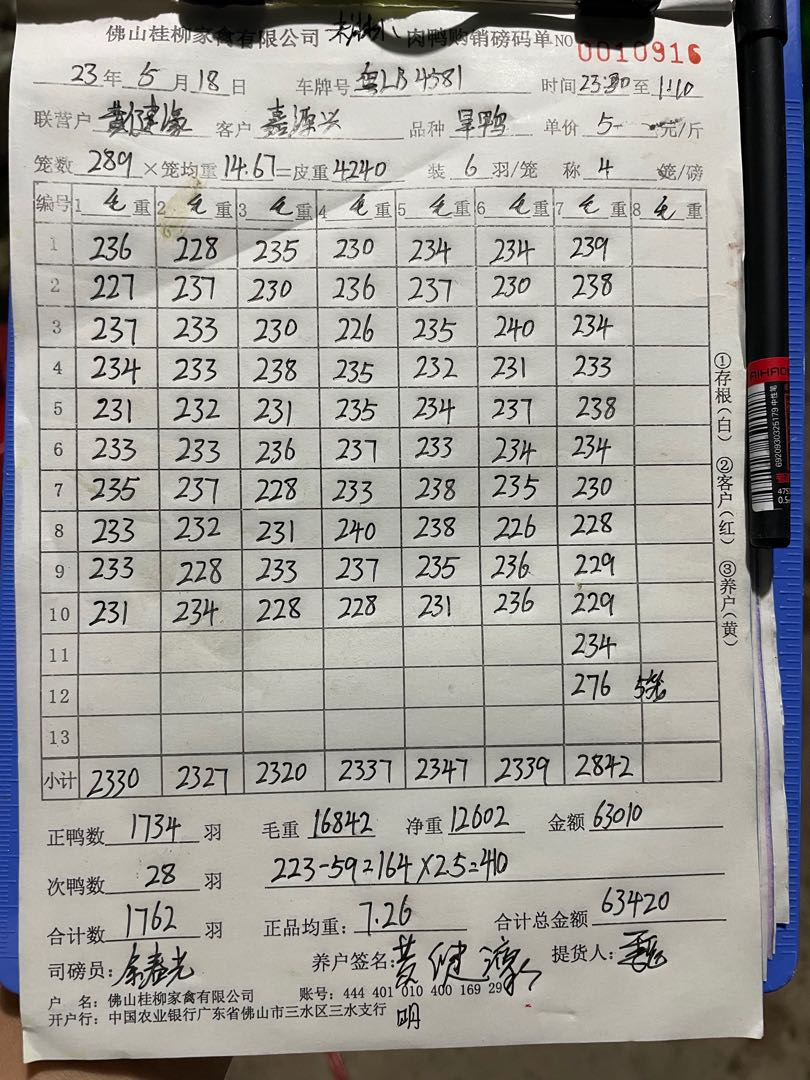 佛山桂柳家禽有限公司 肉鸭购销磅码单 NO 0010916
23年 5月 18日 车牌号 LB4581 时间 23:30 至 1:10
联营户 黄健濠 客户 嘉源兴 品种 旱鸭 单价 5 元/斤
笼数 289 ×笼均重 14.67 =皮重 4240 装 6 羽/笼 称 4 笼/磅
编号 1 毛重 2 毛重 3 毛重 4 毛重 5 毛重 6 毛重 7 毛重 8 毛重
1 236 228 235 230 234 234 239
2 227 237 230 236 237 230 238
3 237 233 230 226 235 240 234
4 234 233 238 235 232 231 233
5 231 232 231 235 234 237 238
6 233 233 236 237 233 234 234
7 235 237 228 233 238 235 230
8 233 232 231 240 238 226 228
9 233 228 233 237 235 236 229
10 231 234 228 228 231 236 229
11 234
12 276 5笼
13
小计 2330 2327 2320 2337 2347 2339 2842
正鸭数 1734 羽 毛重 16842 净重 12602 金额 63010
次鸭数 28 羽 223-59=164×2.5=410
合计数 1762 羽 正品均重: 7.26 合计总金额 63420
司磅员: 余春光 养户签名: 黄健濠 提货人:
户 名: 佛山桂柳家禽有限公司 账号: 444 401 010 400 169 29
开户行: 中国农业银行广东省佛山市三水区三水支行 明
①存根(白) ②客户(红) ③养户(黄)
AIHAO
中性笔
6920930325179